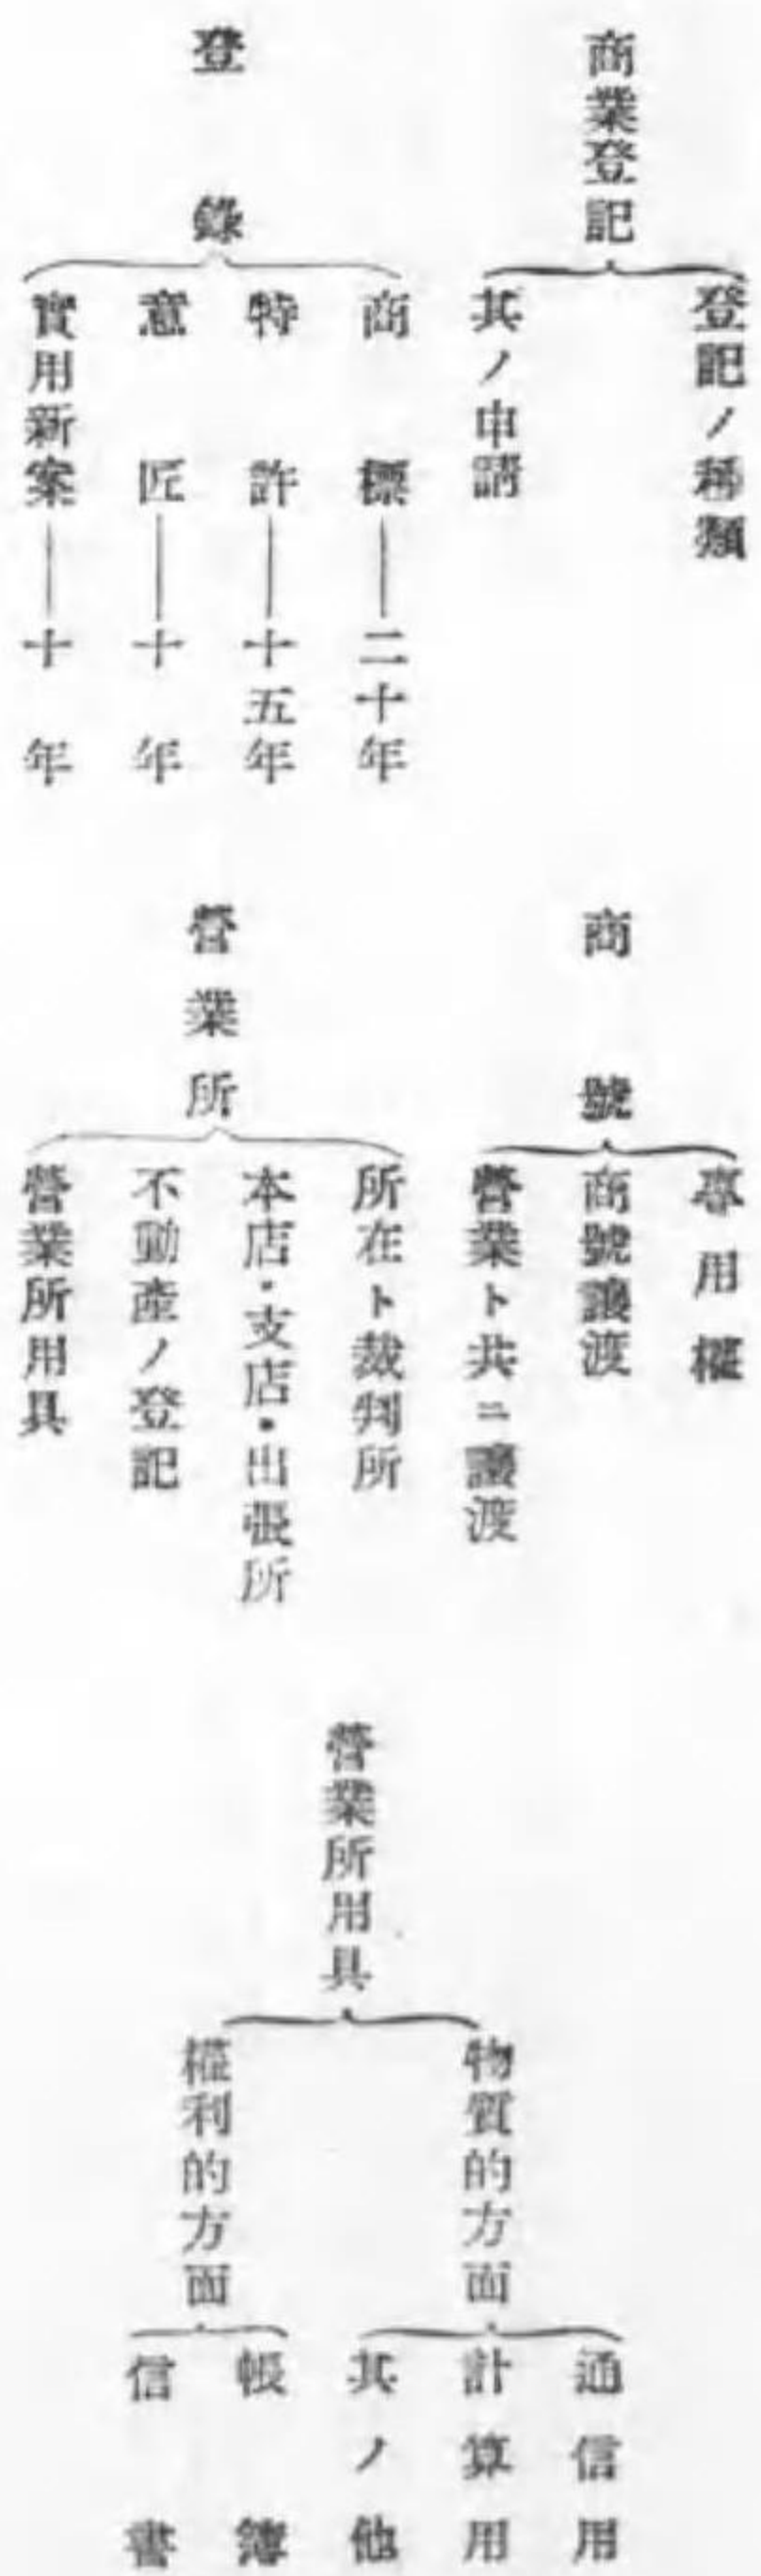 商業登記
登記ノ種類
其ノ申請
登錄
商標――二十年
特許――十五年
意匠――十年
實用新案――十年
商號
專用權
商號讓渡
營業ト共ニ讓渡
營業所
所在ト裁判所
本店・支店・出張所
不動產ノ登記
營業所用具
營業所用具
物質的方面
通信用
計算用
其ノ他
權利的方面
帳簿
信書